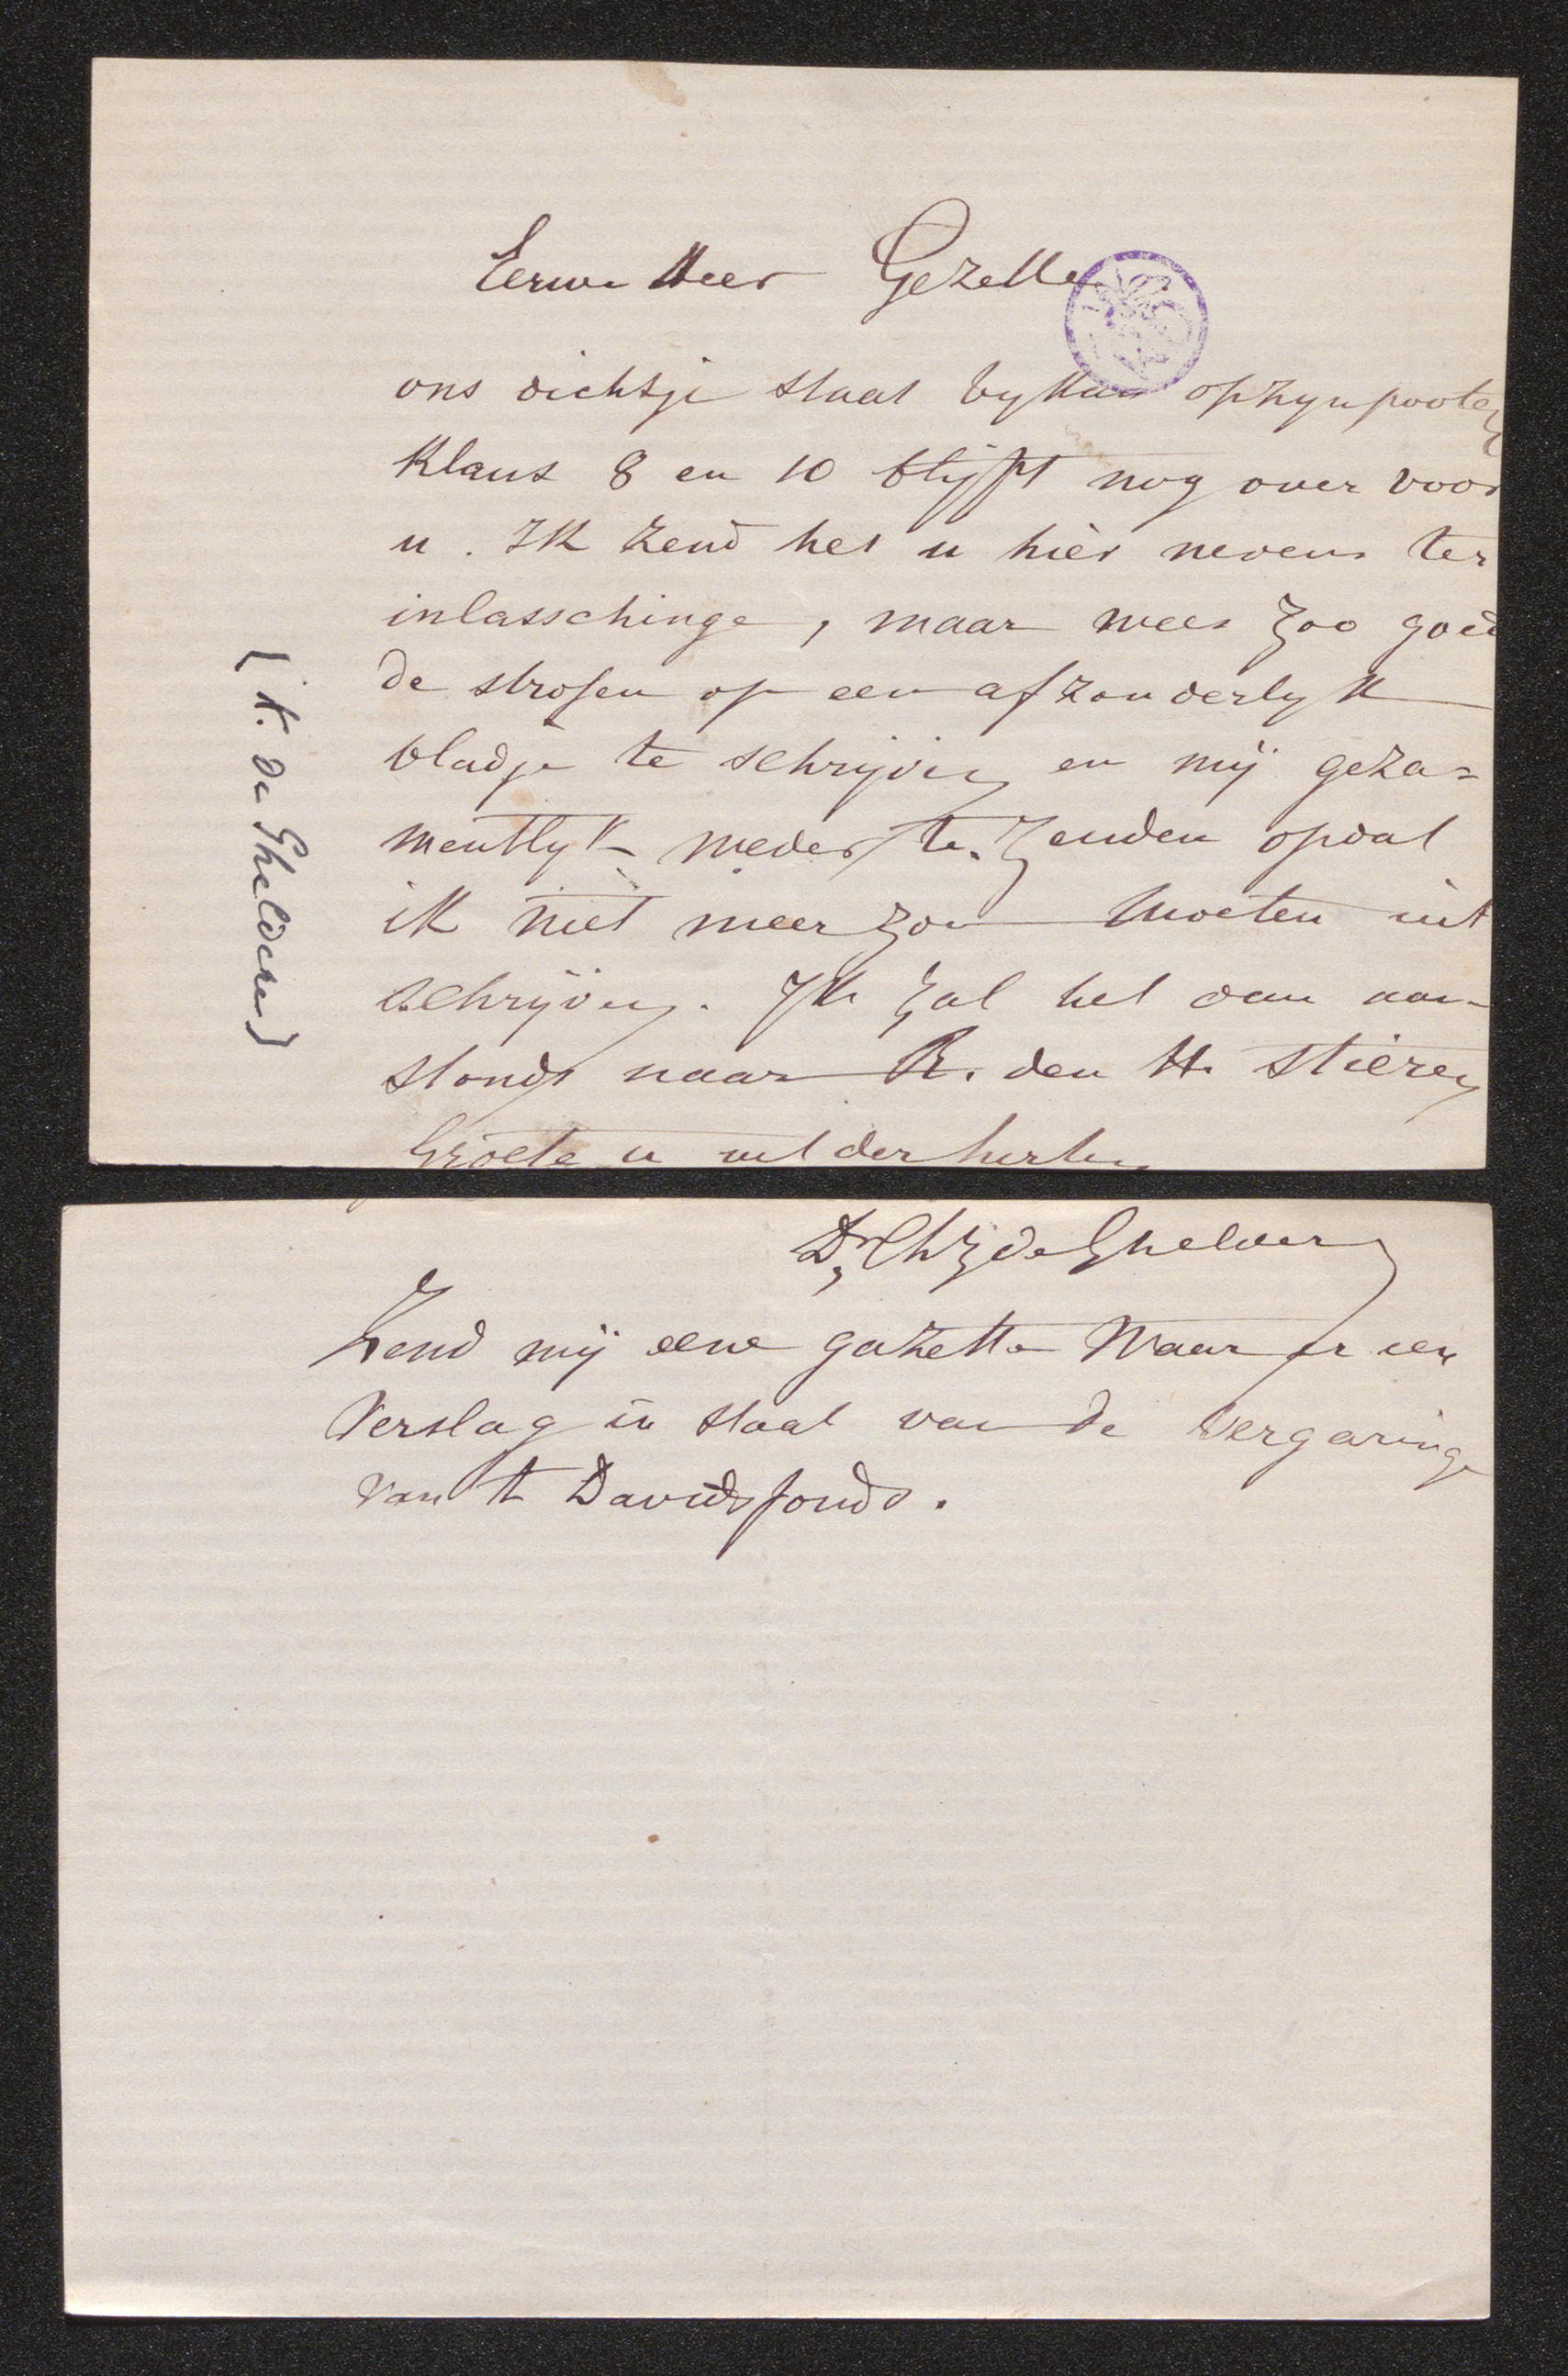 Eerw. Heer Gezelle
ons dichtje staat bykan op zyn pooten
Klaus 8 en 10 blijft nog over voor
u. Ik zend het u hier nevens ter
inlasschinge, maar wees zoo goed
de strofen op een afzonderlyk
bladje te schrijven en mij geza=
mentlyk weder te zenden opdat
ik niet meer zou moeten uit
schrijven. Ik zal het dan aan-
stonds naar R. den H. Stieren
Groete u uit der herten
(K. de Gheldere)
Dr Ch de Gheldere
Zend mij eene gazette waar er een
Verslag in staat van de vergaringe
van t Davidsfonds.